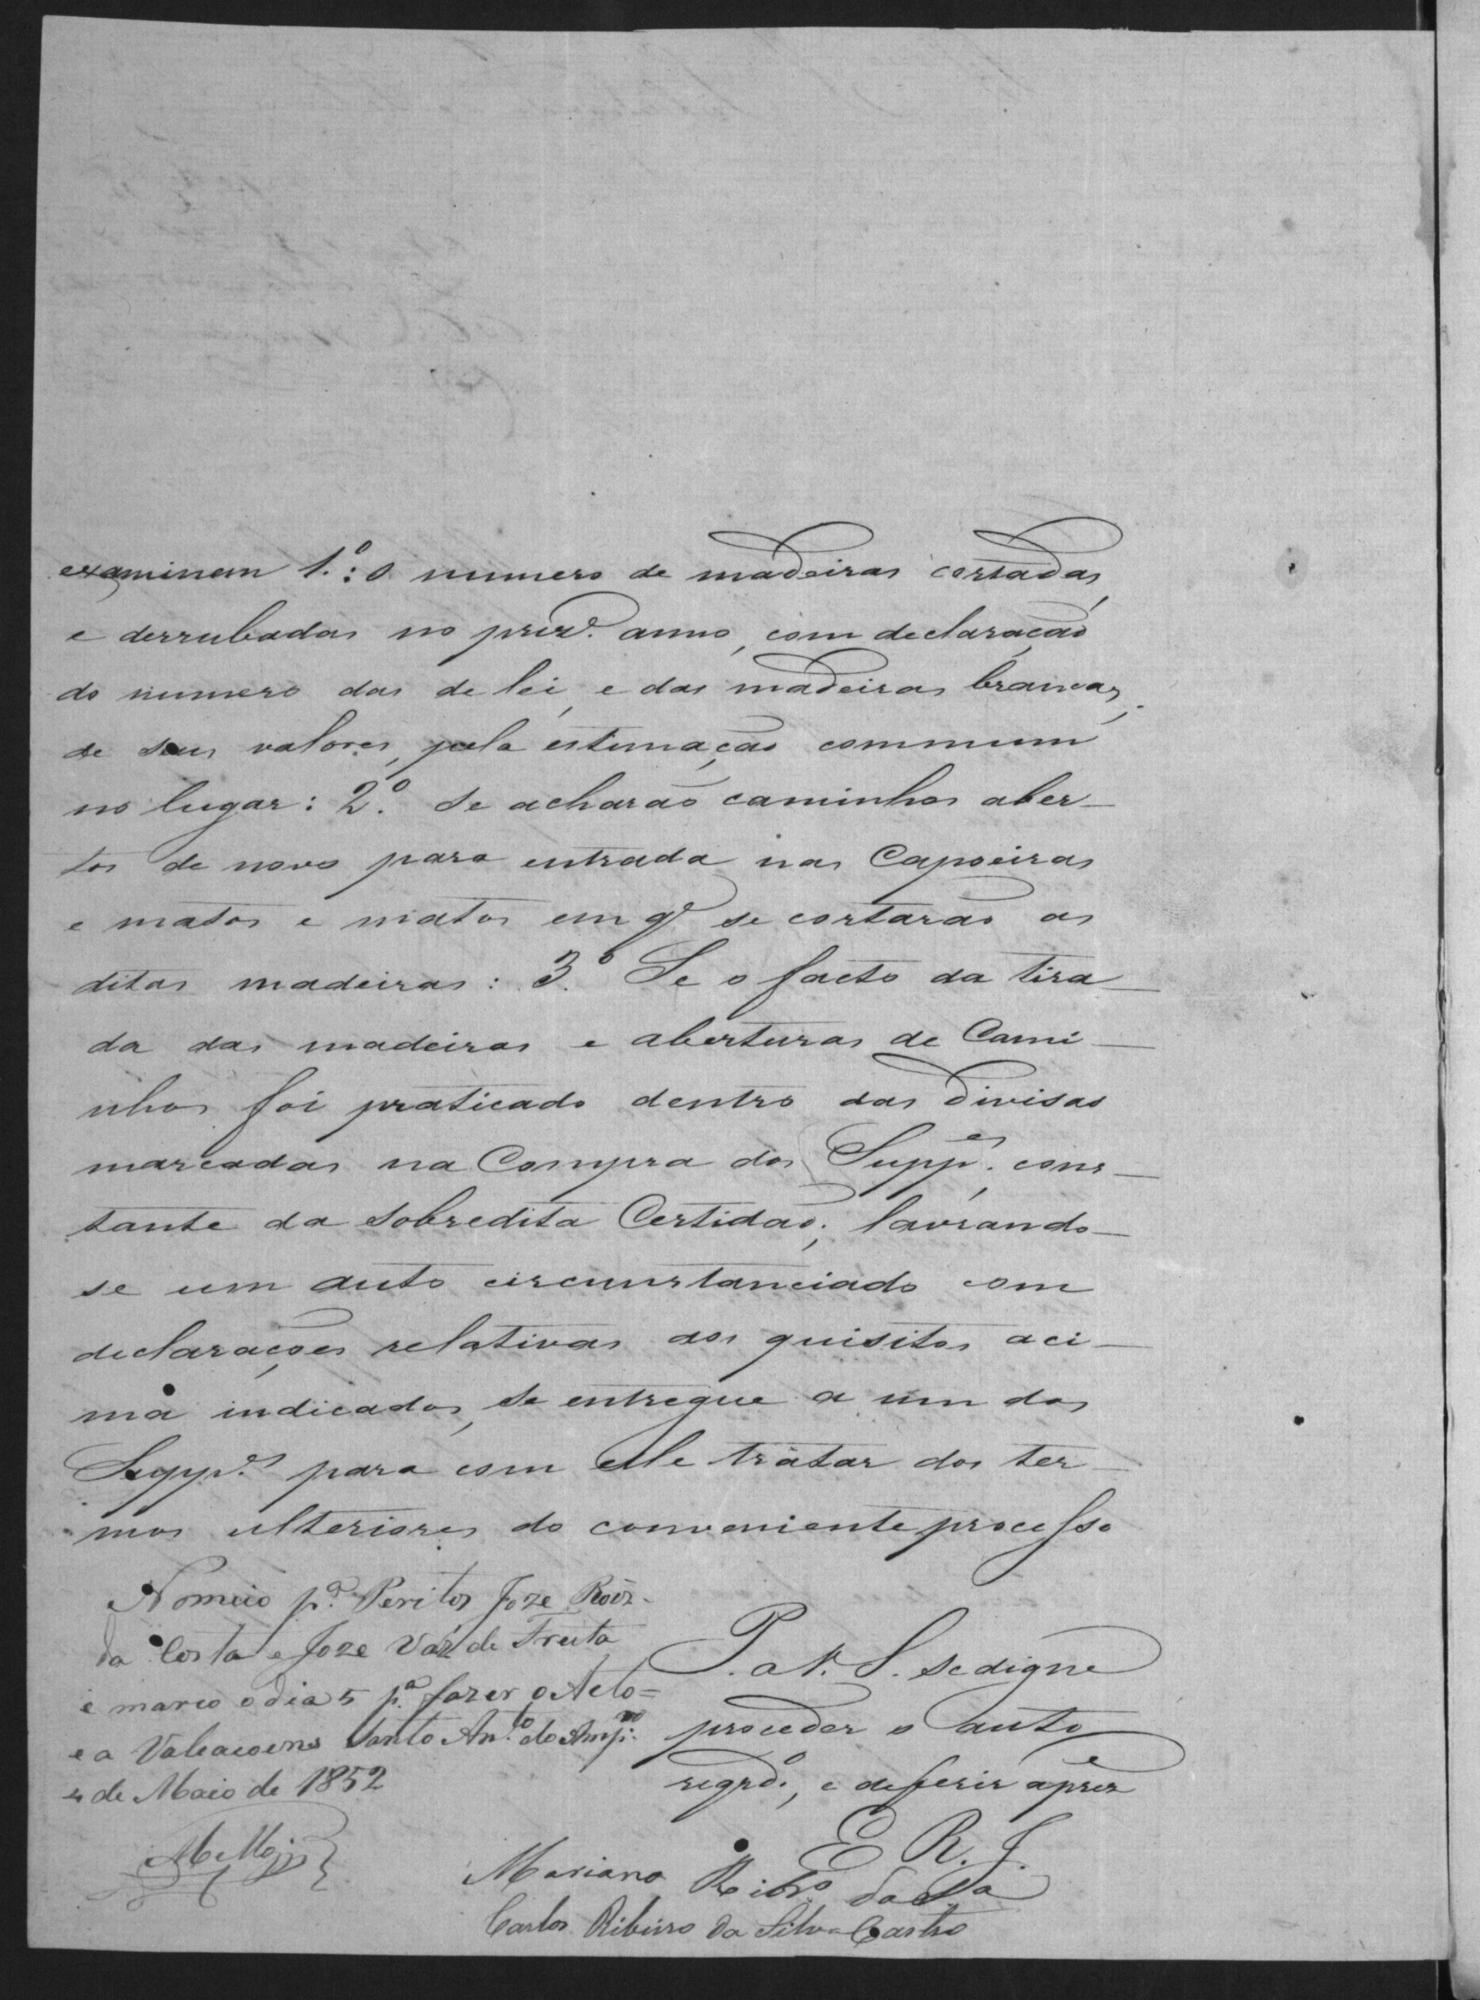 examinem 1.º: o numero de madeiras cortadas,
e derrubadas no prez.e anno, com declaração
do numero das de lei, e das madeiras brancas,
de seus valores, pela estimação commum
no lugar: 2.º Se acharão caminhos aber-
tos de novo para entrada nas Capoeiras
e matos e matos em q̃ se cortarão as
ditas madeiras: 3.º Se o facto da tira-
da das madeiras e aberturas de Cami-
nhos foi praticado dentro das divisas
marcadas na Compra dos Supp.es cons-
tante da sobredita Certidão; lavrando-
se um auto circunstanciado com
declarações relativas aos quisitos aci-
ma indicados, se entregue a um dos
Supp.es para com elle tratar dos ter-
mos ulteriores do conveniente processo
Nomeio p.a Peritos Joze Roiz
da Costa e Joze Vaz de Freita
e marco o dia 5 p.a fazer o Acto=
e a Santo An.to do Amp.ro
4 de Maio de 1852
P. a V. S. se digne
proceder o auto
reqrd.o, e deferir
E. R. J.
Mariano Ribr.o da S.a
Carlos Ribeiro da Silva Castro